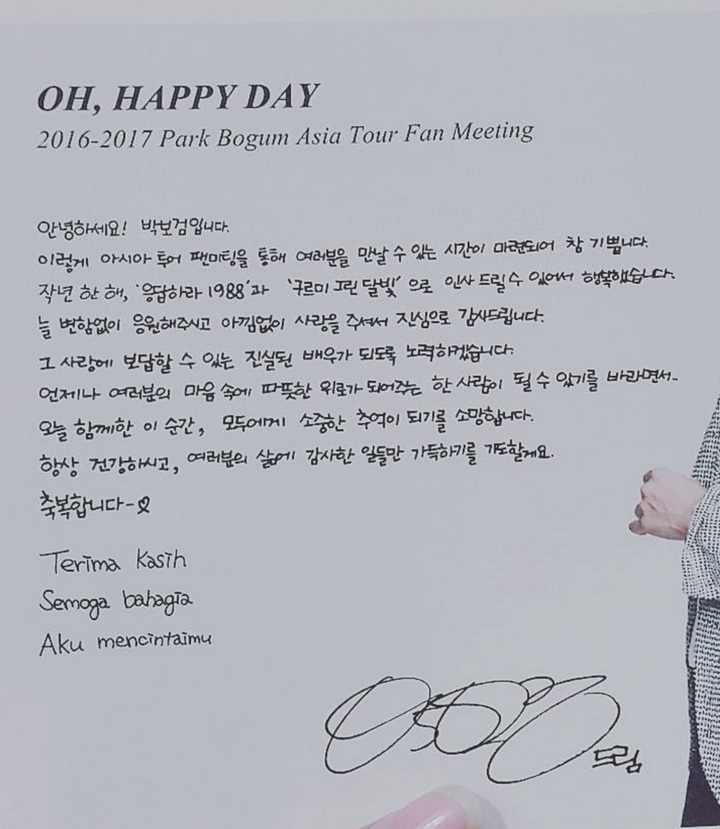 OH, HAPPY DAY
2016-2017 Park Bogum Asia Tour Fan Meeting
안녕하세요! 박보검입니다.
이렇게 아시아 투어 팬미팅을 통해 여러분을 만날 수 있는 시간이 마련되어 참 기쁩니다.
작년 한 해, '응답하라 1988'과 '구르미 그린 달빛'으로 인사 드릴 수 있어서 행복했습니다.
늘 변함없이 응원해주시고 아낌없이 사랑을 주셔서 진심으로 감사드립니다.
그 사랑에 보답할 수 있는 진실된 배우가 되도록 노력하겠습니다.
언제나 여러분의 마음 속에 따뜻한 위로가 되어주는 한 사람이 될 수 있기를 바라면서..
오늘 함께한 이 순간, 모두에게 소중한 추억이 되기를 소망합니다.
항상 건강하시고, 여러분의 삶에 감사한 일들만 가득하기를 기도할게요.
축복합니다-♡
Terima Kasih
Semoga bahagia
Aku mencintaimu
드림